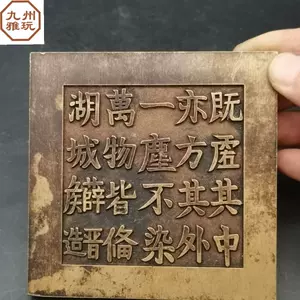 既虛其中
亦方其外
一塵不染
萬物皆備
湖城薛晋侯造
九州
雅玩